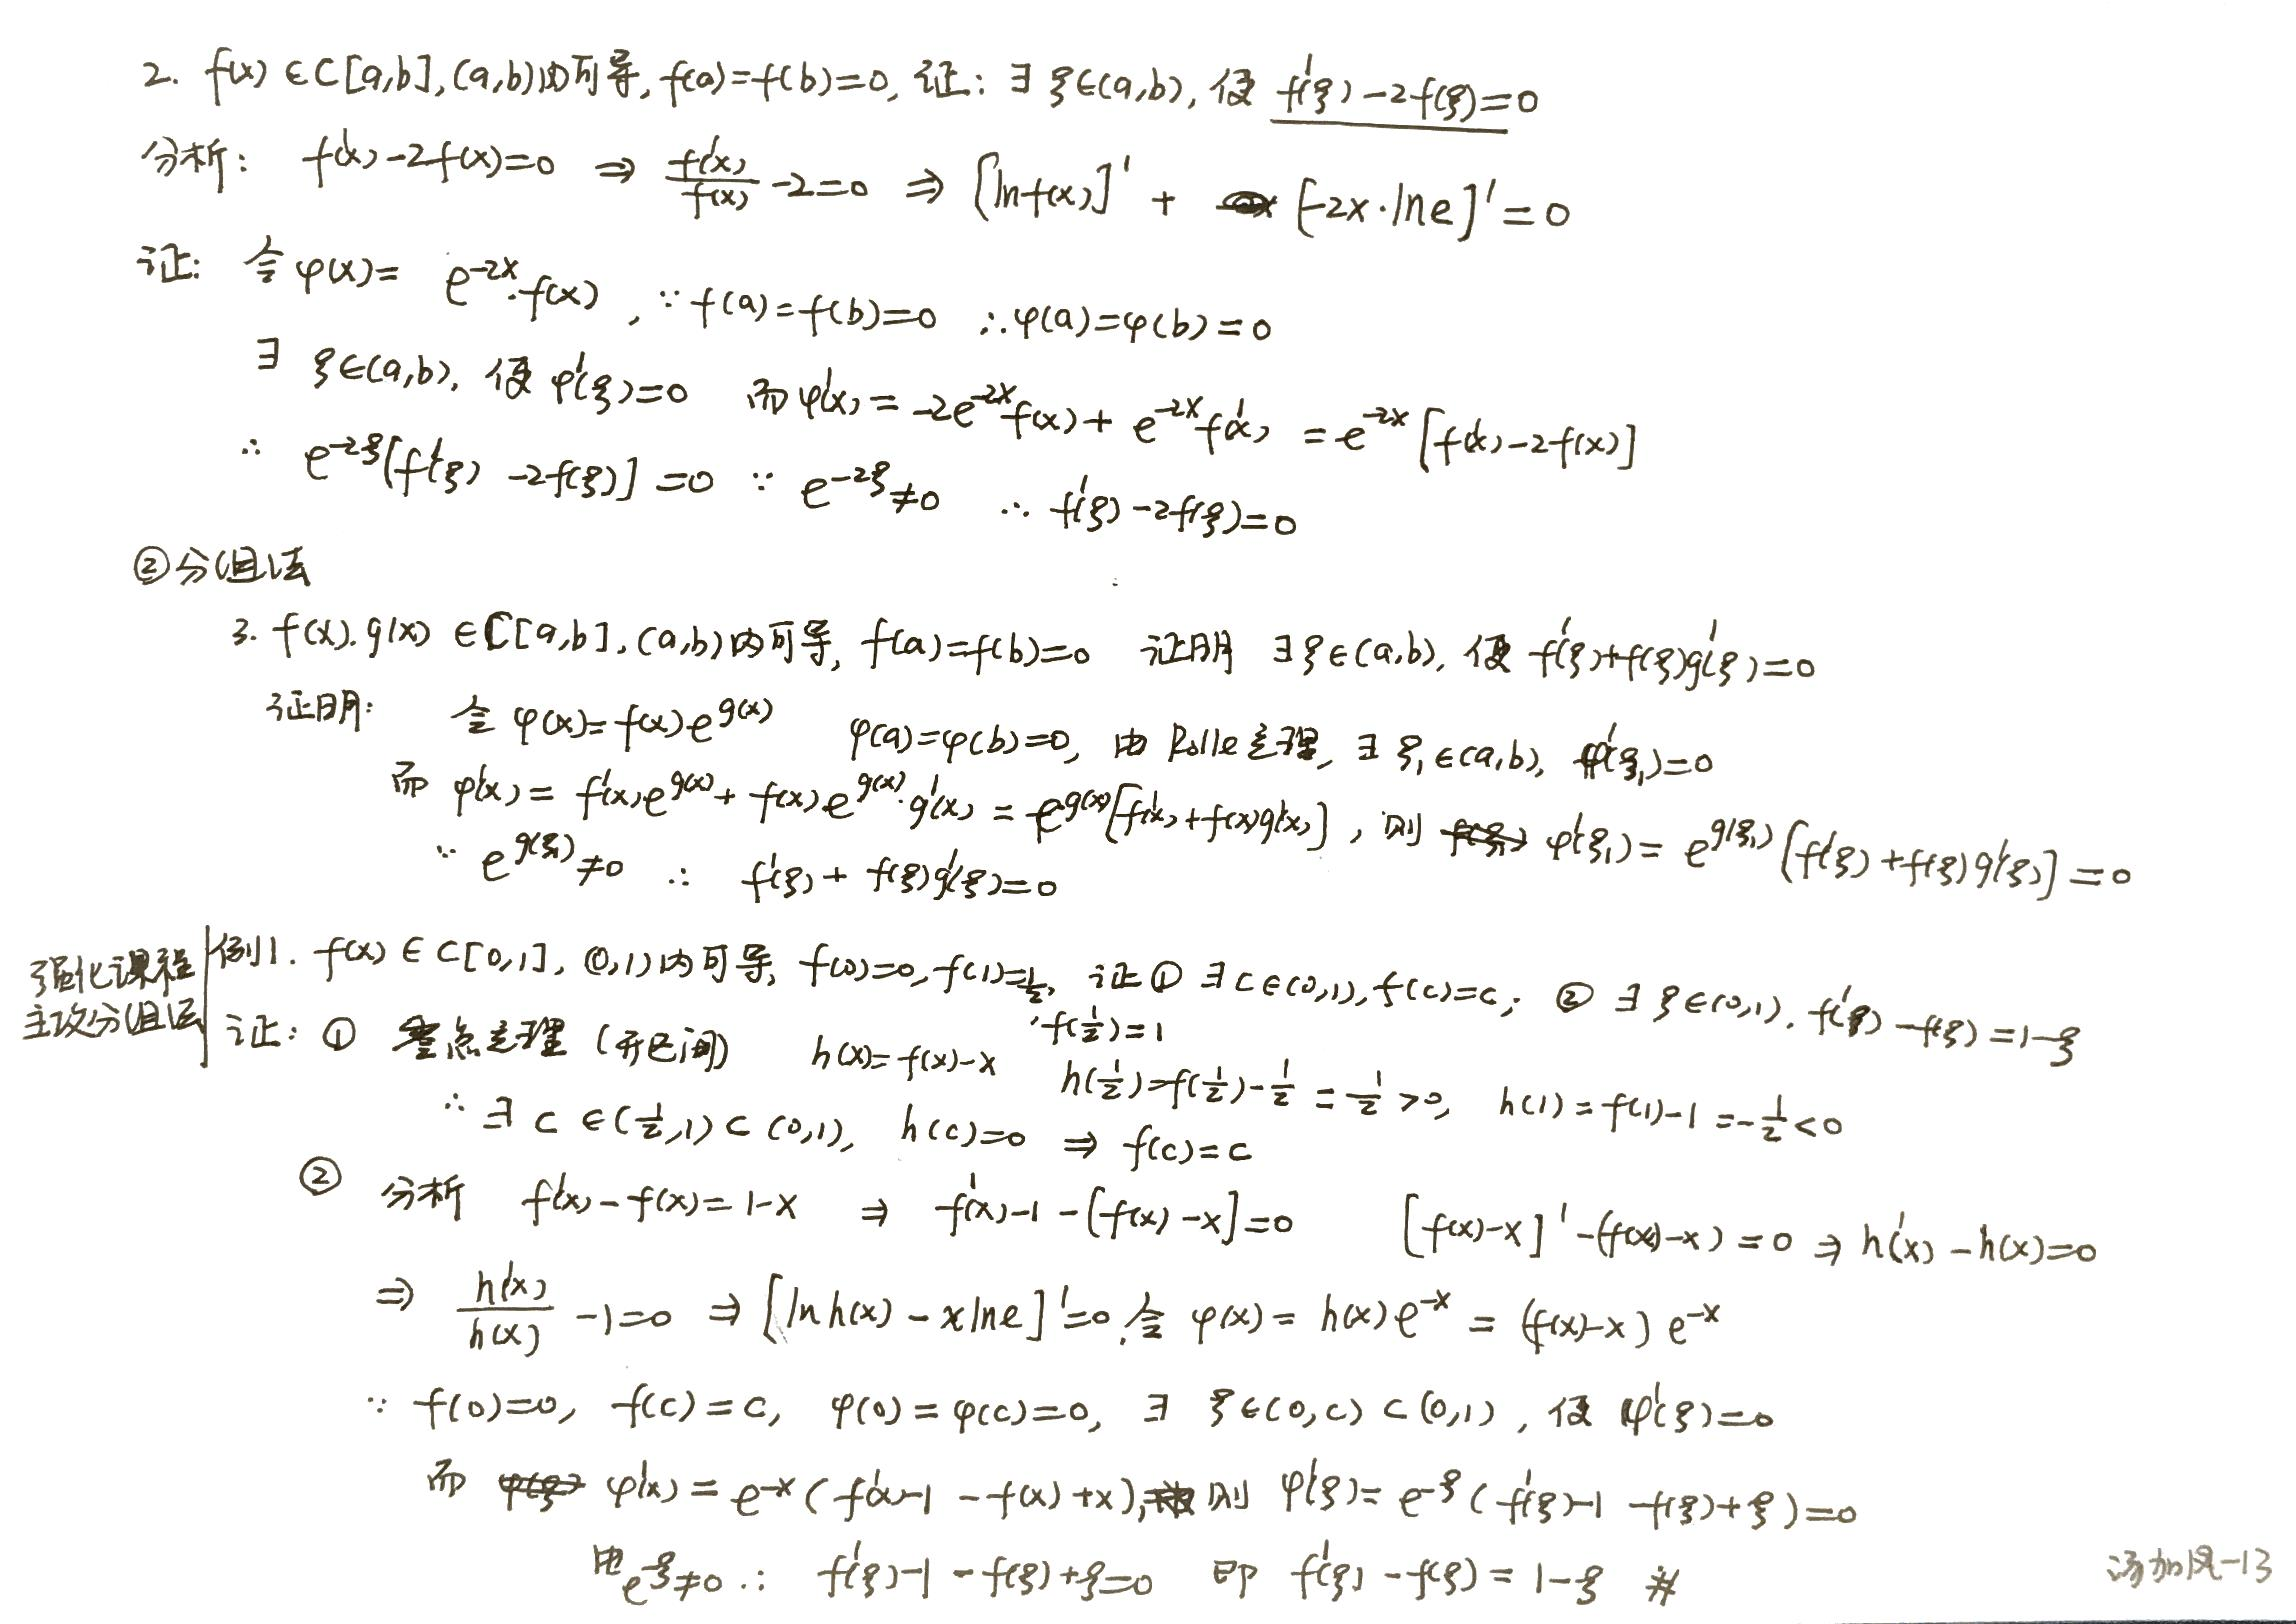 2. f(x)∈C[a,b],(a,b)内可导,f(a)=f(b)=0,证:∃ξ∈(a,b),使f'(ξ)-2f(ξ)=0
分析: f'(x)-2f(x)=0 ⇒ f'(x)/f(x) -2=0 ⇒ [lnf(x)]' + [-2x·lne]'=0
证: 令φ(x)= e^{-2x}·f(x), ∵f(a)=f(b)=0 ∴φ(a)=φ(b)=0
∃ ξ∈(a,b),使φ'(ξ)=0 而φ'(x)=-2e^{-2x}f(x)+e^{-2x}f'(x) =e^{-2x}[f'(x)-2f(x)]
∴ e^{-2ξ}[f'(ξ)-2f(ξ)]=0 ∵ e^{-2ξ}≠0 ∴ f'(ξ)-2f(ξ)=0
②分组法
3. f(x).g(x)∈C[a,b],(a,b)内可导,f(a)=f(b)=0 证明 ∃ξ∈(a,b),使f'(ξ)+f(ξ)g'(ξ)=0
证明: 令φ(x)=f(x)e^{g(x)} φ(a)=φ(b)=0,由Rolle定理,∃ξ₁∈(a,b),φ'(ξ₁)=0
而φ'(x)=f'(x)e^{g(x)}+f(x)e^{g(x)}·g'(x)=e^{g(x)}[f'(x)+f(x)g'(x)],则φ'(ξ₁)=e^{g(ξ₁)}[f'(ξ)+f(ξ)g'(ξ)]=0
∵ e^{g(ξ₁)}≠0 ∴ f'(ξ)+f(ξ)g'(ξ)=0
强化课程
主攻分组法
例1. f(x)∈C[0,1],(0,1)内可导,f(0)=0,f(1)=1/2, 证①∃c∈(0,1),f(c)=c; ②∃ξ∈(0,1).f'(ξ)-f(ξ)=1-ξ
,f(1/2)=1
证: ① 零点定理(开区间) h(x)=f(x)-x h(1/2)=f(1/2)-1/2=1/2>0, h(1)=f(1)-1=-1/2<0
∴∃c∈(1/2,1)⊂(0,1), h(c)=0 ⇒ f(c)=c
② 分析 f'(x)-f(x)=1-x ⇒ f'(x)-1-[f(x)-x]=0 [f(x)-x]'-(f(x)-x)=0 ⇒ h'(x)-h(x)=0
⇒ h'(x)/h(x) -1=0 ⇒ [ln h(x)-xlne]'=0,令φ(x)=h(x)e^{-x}=(f(x)-x)e^{-x}
∵ f(0)=0, f(c)=c, φ(0)=φ(c)=0, ∃ ξ∈(0,c)⊂(0,1),使φ'(ξ)=0
而 φ'(x)=e^{-x}(f'(x)-1-f(x)+x),则φ'(ξ)=e^{-ξ}(f'(ξ)-1-f(ξ)+ξ)=0
由e^{-ξ}≠0 ∴ f'(ξ)-1-f(ξ)+ξ=0 即 f'(ξ)-f(ξ)=1-ξ #
汤加凤-13